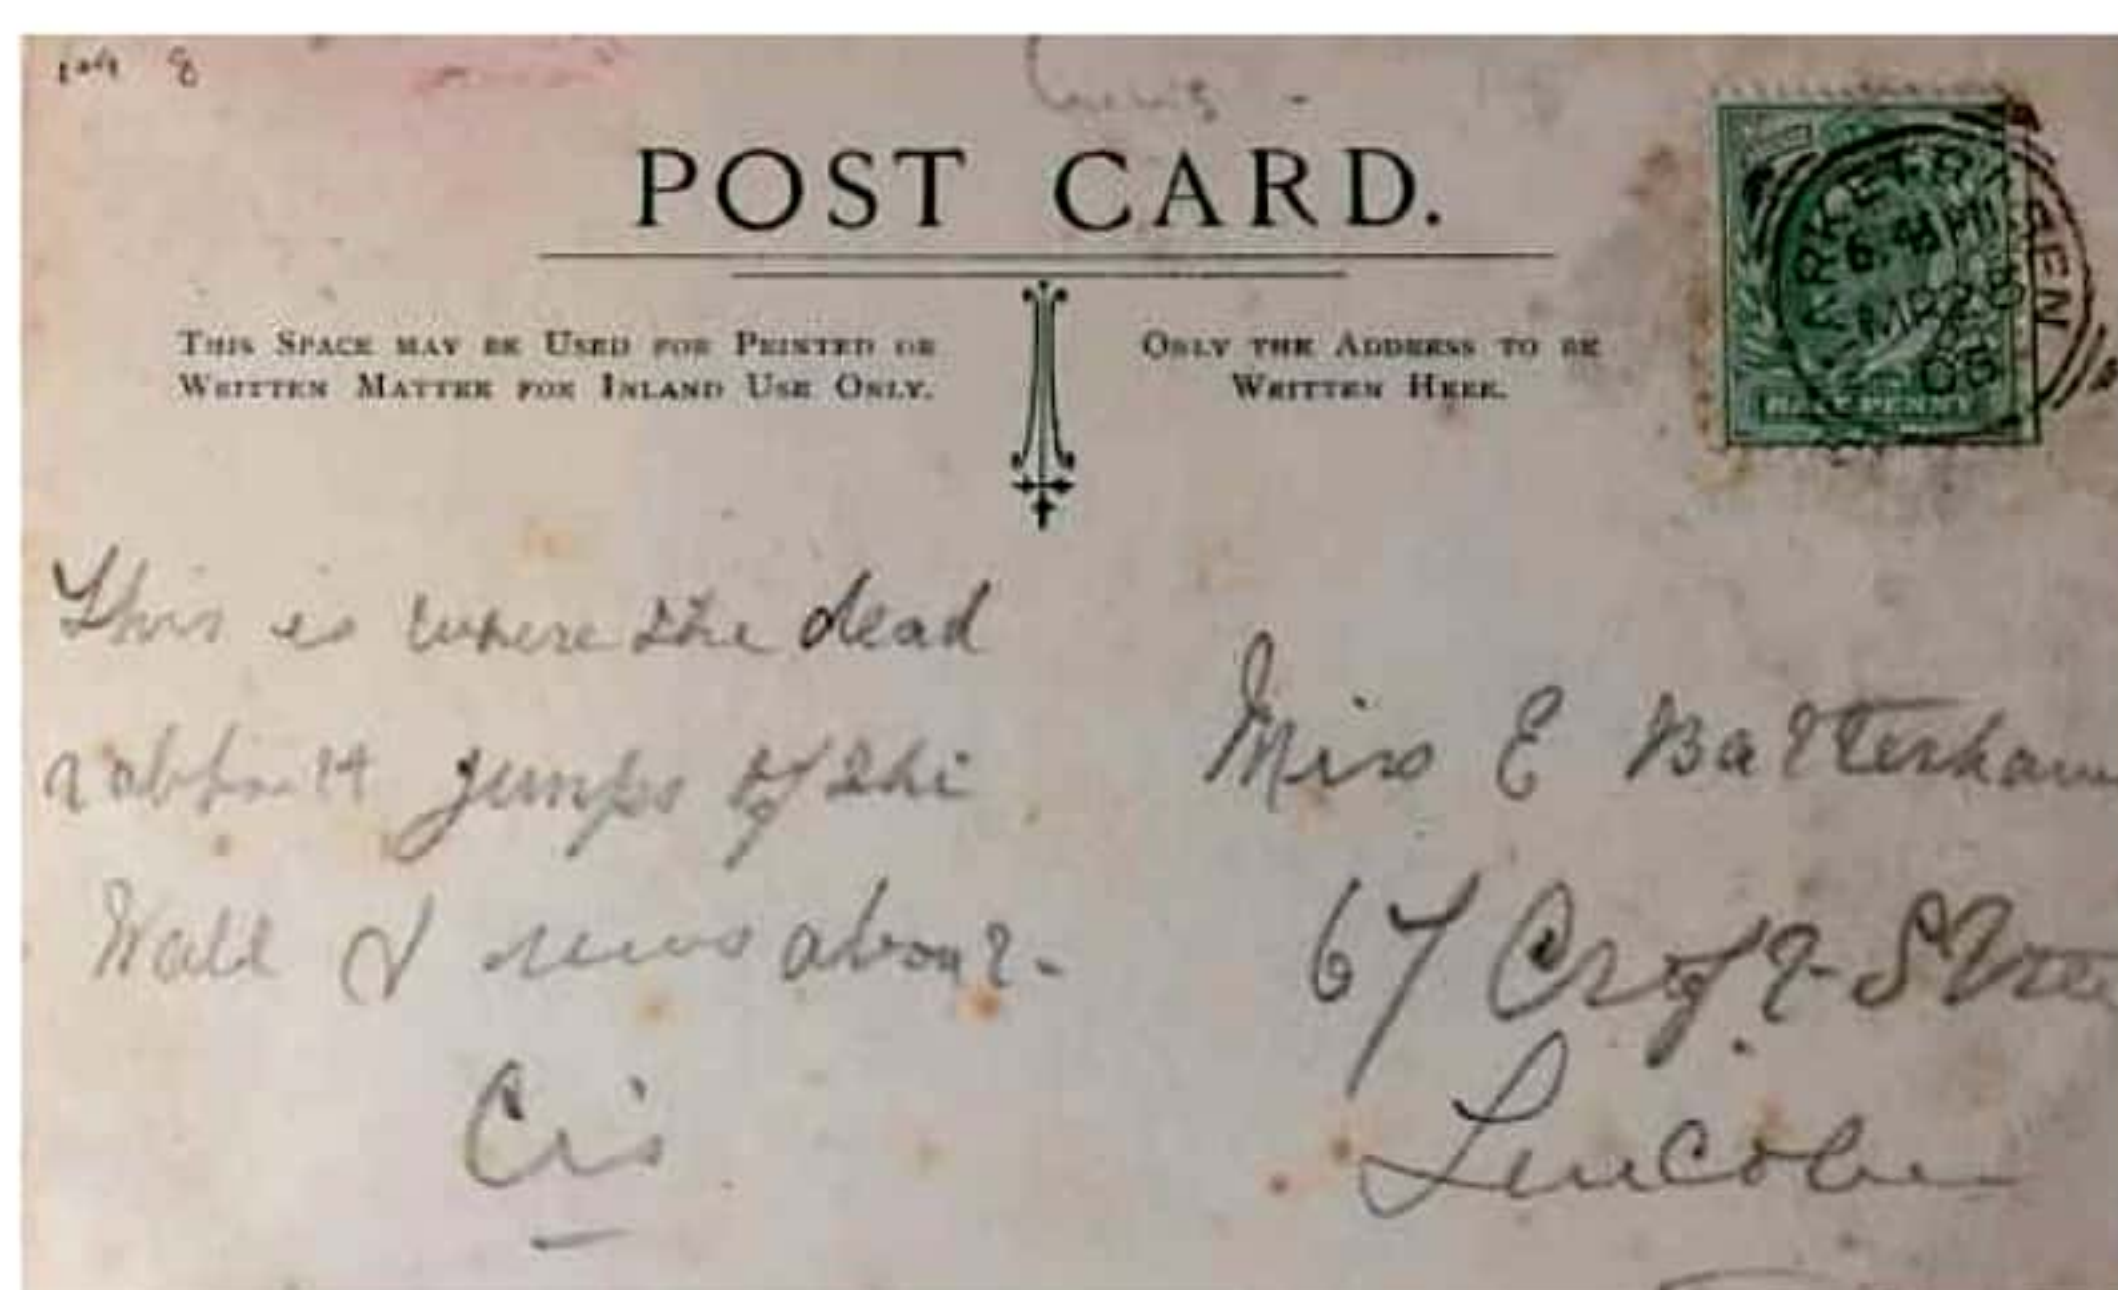 POST CARD.
THIS SPACE MAY BE USED FOR PRINTED OR
WRITTEN MATTER FOR INLAND USE ONLY.
ONLY THE ADDRESS TO BE
WRITTEN HERE.
MARKET RASEN
MR 28
05
HALFPENNY
This is where the dead
jumps of the
Wall & news about
Cis
Miss E Batterham
67 Croft Stree
Lincoln